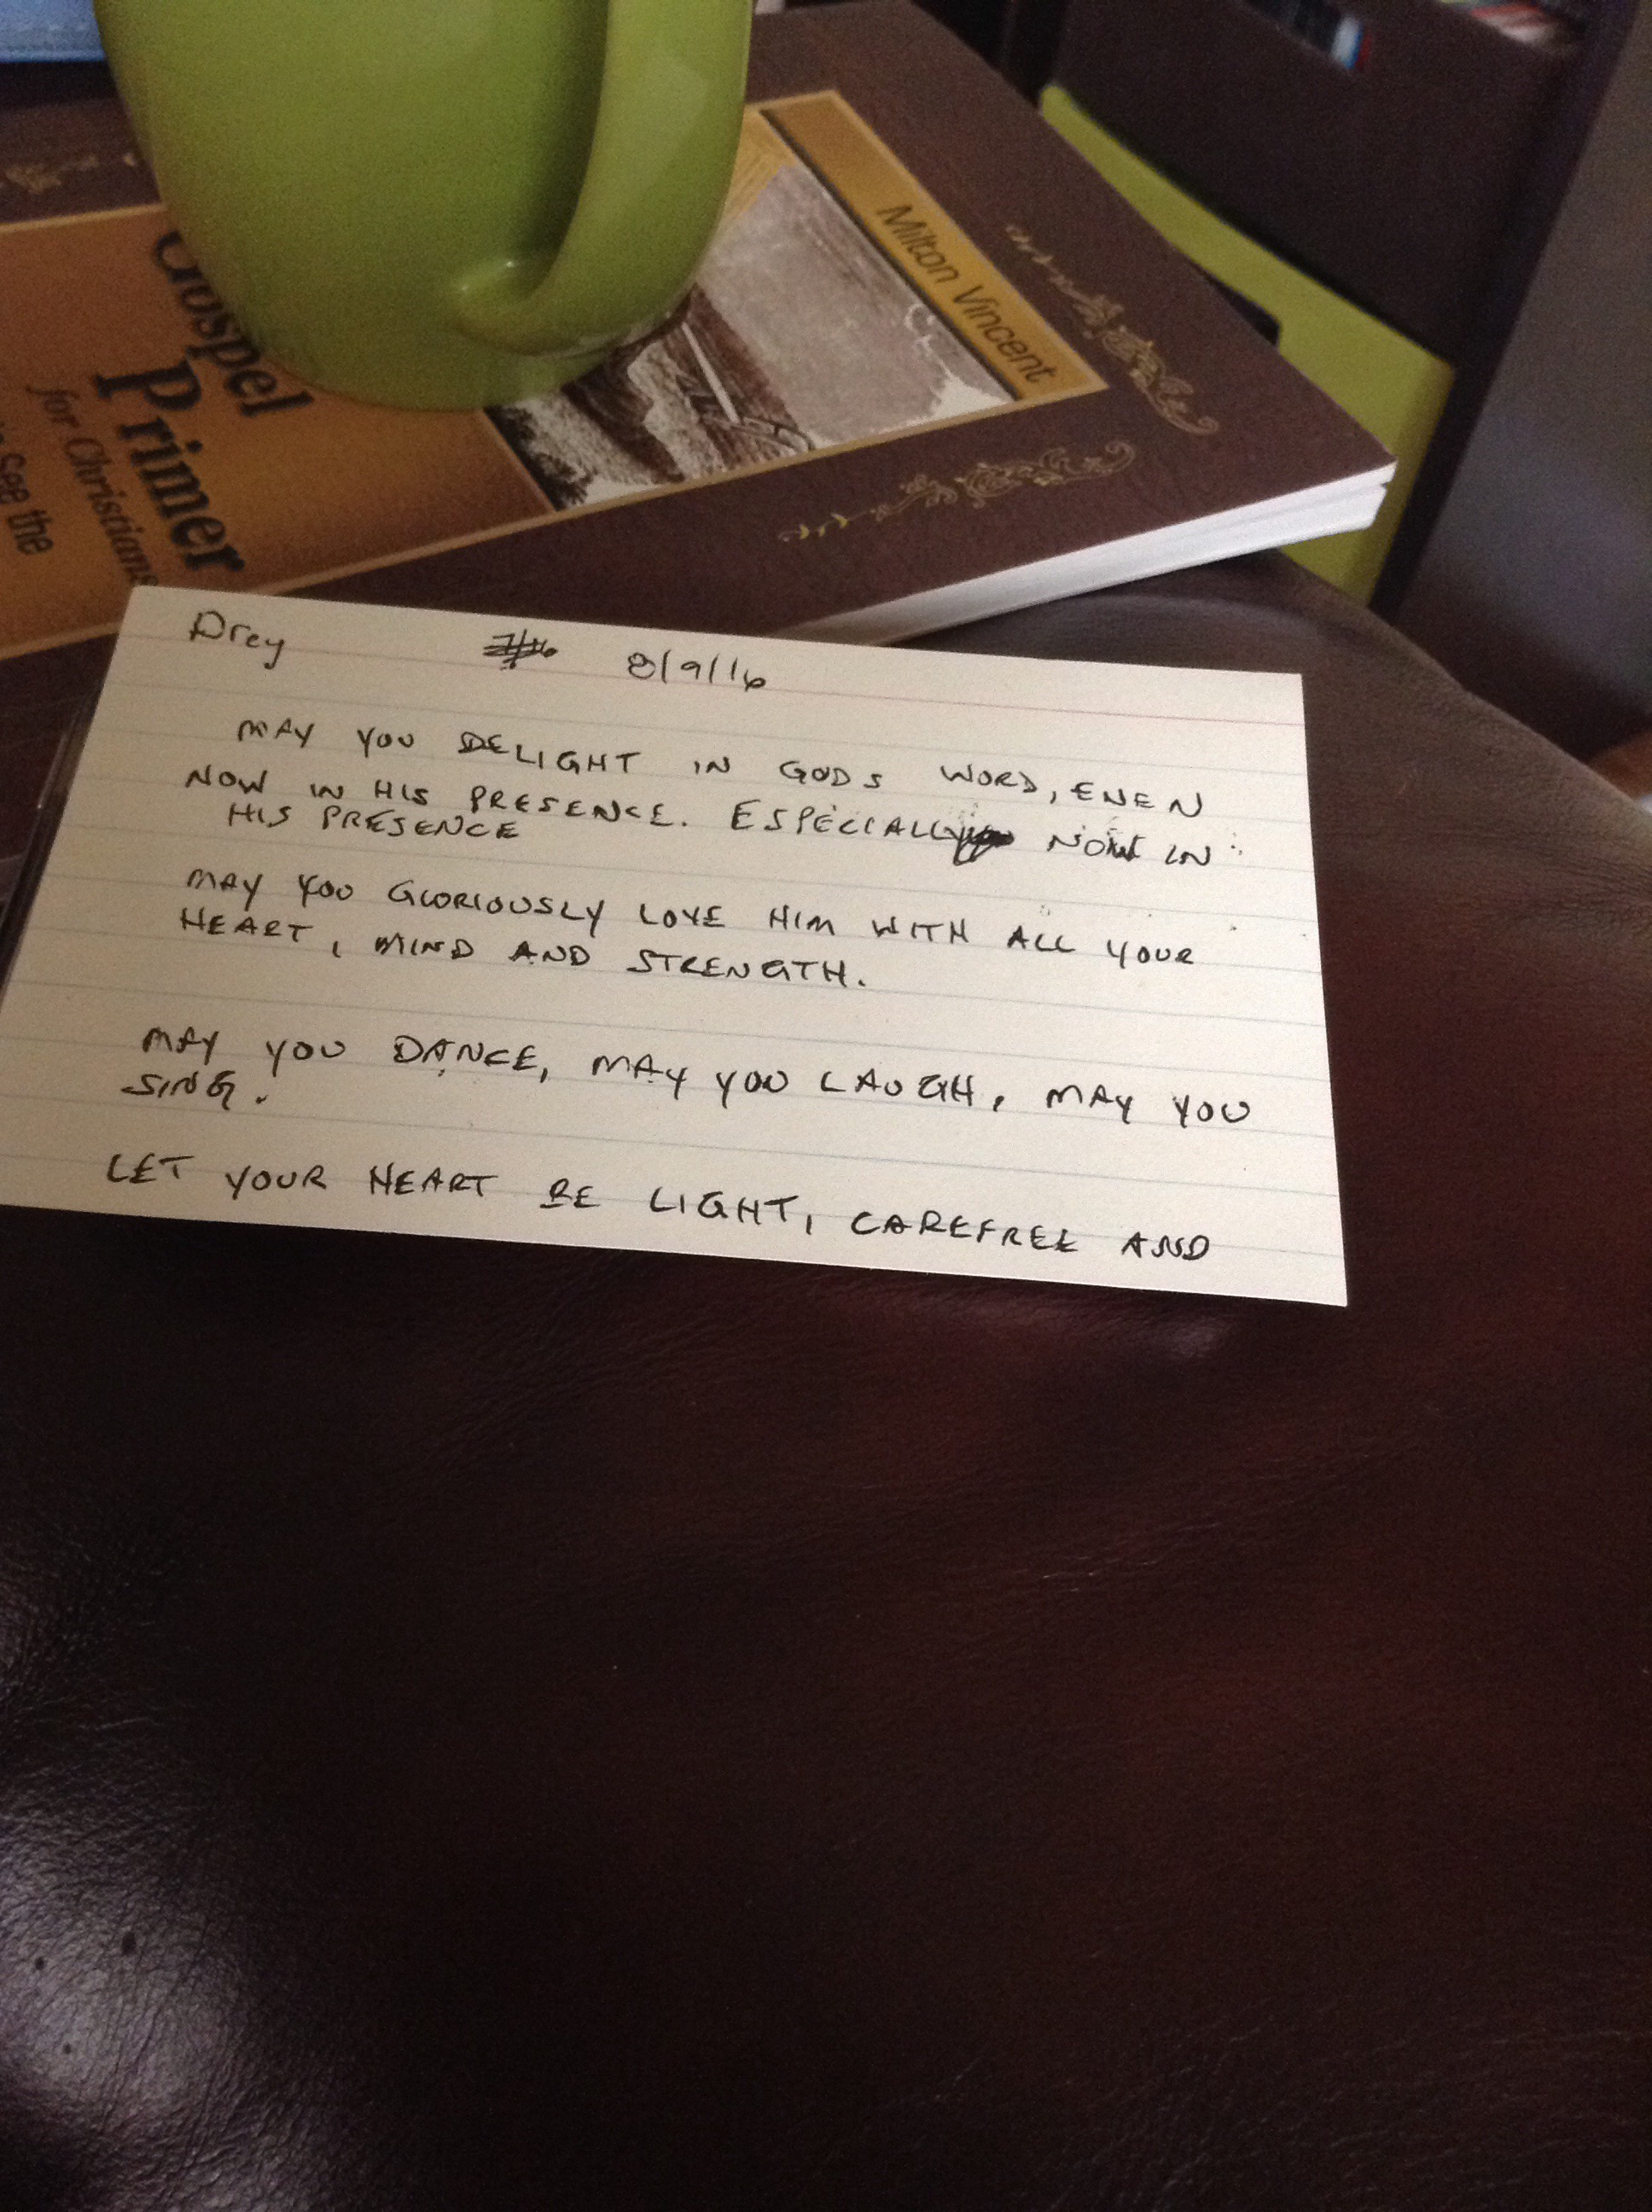 Milton Vincent
Gospel
Primer
for Christians
See the
Drey 8/9/16
MAY YOU DELIGHT IN GODS WORD, EVEN
NOW IN HIS PRESENCE. ESPECIALLY NOW IN
HIS PRESENCE
MAY YOU GLORIOUSLY LOVE HIM WITH ALL YOUR
HEART, MIND AND STRENGTH.
MAY YOU DANCE, MAY YOU LAUGH, MAY YOU
SING.
LET YOUR HEART BE LIGHT, CAREFREE AND